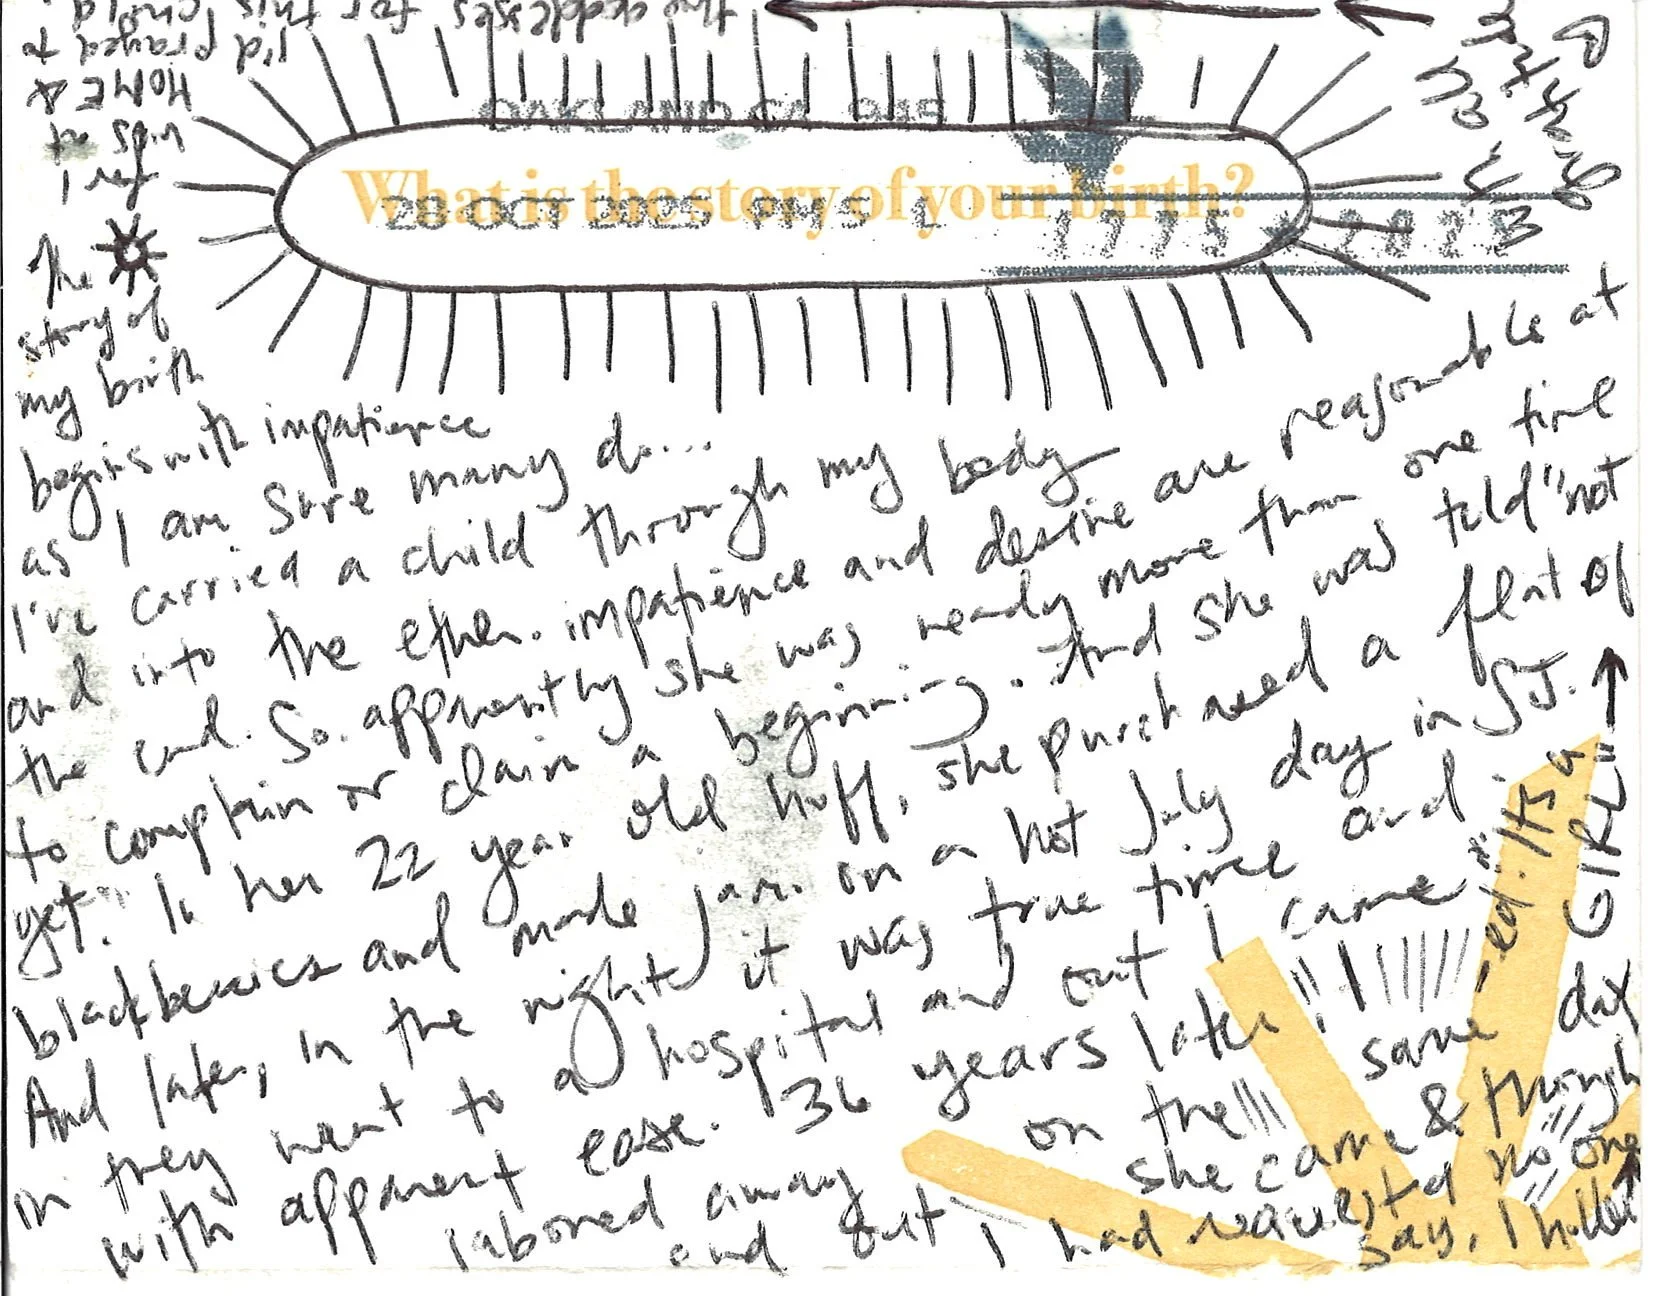 What is the story of your birth?
OAKLAND CA 945
28 OCT 2025 PM 5 L
1775 2025
The
story of
my birth
begins with impatience
as I am sure many do...
I've carried a child through my body
and into the ether. impatience and desire are reasonable at
the end. So. apparently she was ready more than one time
to complain or claim a beginning. And she was told "not
yet." In her 22 year old huff, she purchased a flat of
blackberries and made jam. on a hot July day in SJ.
And later, in the night it was true time and
in they went to a hospital and out I came
with apparent ease. 36 years later I
labored away on the same day
and out she came & though
I had requested no one
say, I hollered. It's a
GIRL"
the goddesses for this child
I'd prayed to
HOME &
kids at
for I